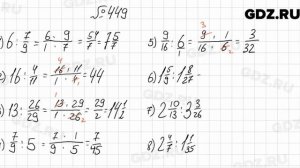 GDZ.RU
№449
1) 6 · 7/9 = 6 · 9/1 · 7 = 54/7 = 7 5/7
2) 16 · 4/11 = 16 · 11/1 · 4 = 44
3) 13 : 26/29 = 13 · 29/1 · 26 = 29/2 = 14 1/2
4) 7/9 : 5 = 7 · 1/9 · 5 = 7/45
5) 9/16 : 6/1 = 9 · 1/16 · 6 = 3/32
6) 1 5/9 : 1 8/27 =
7) 2 10/13 : 3 3/26
8) 2 4/7 : 1 1/35
GDZ.RU